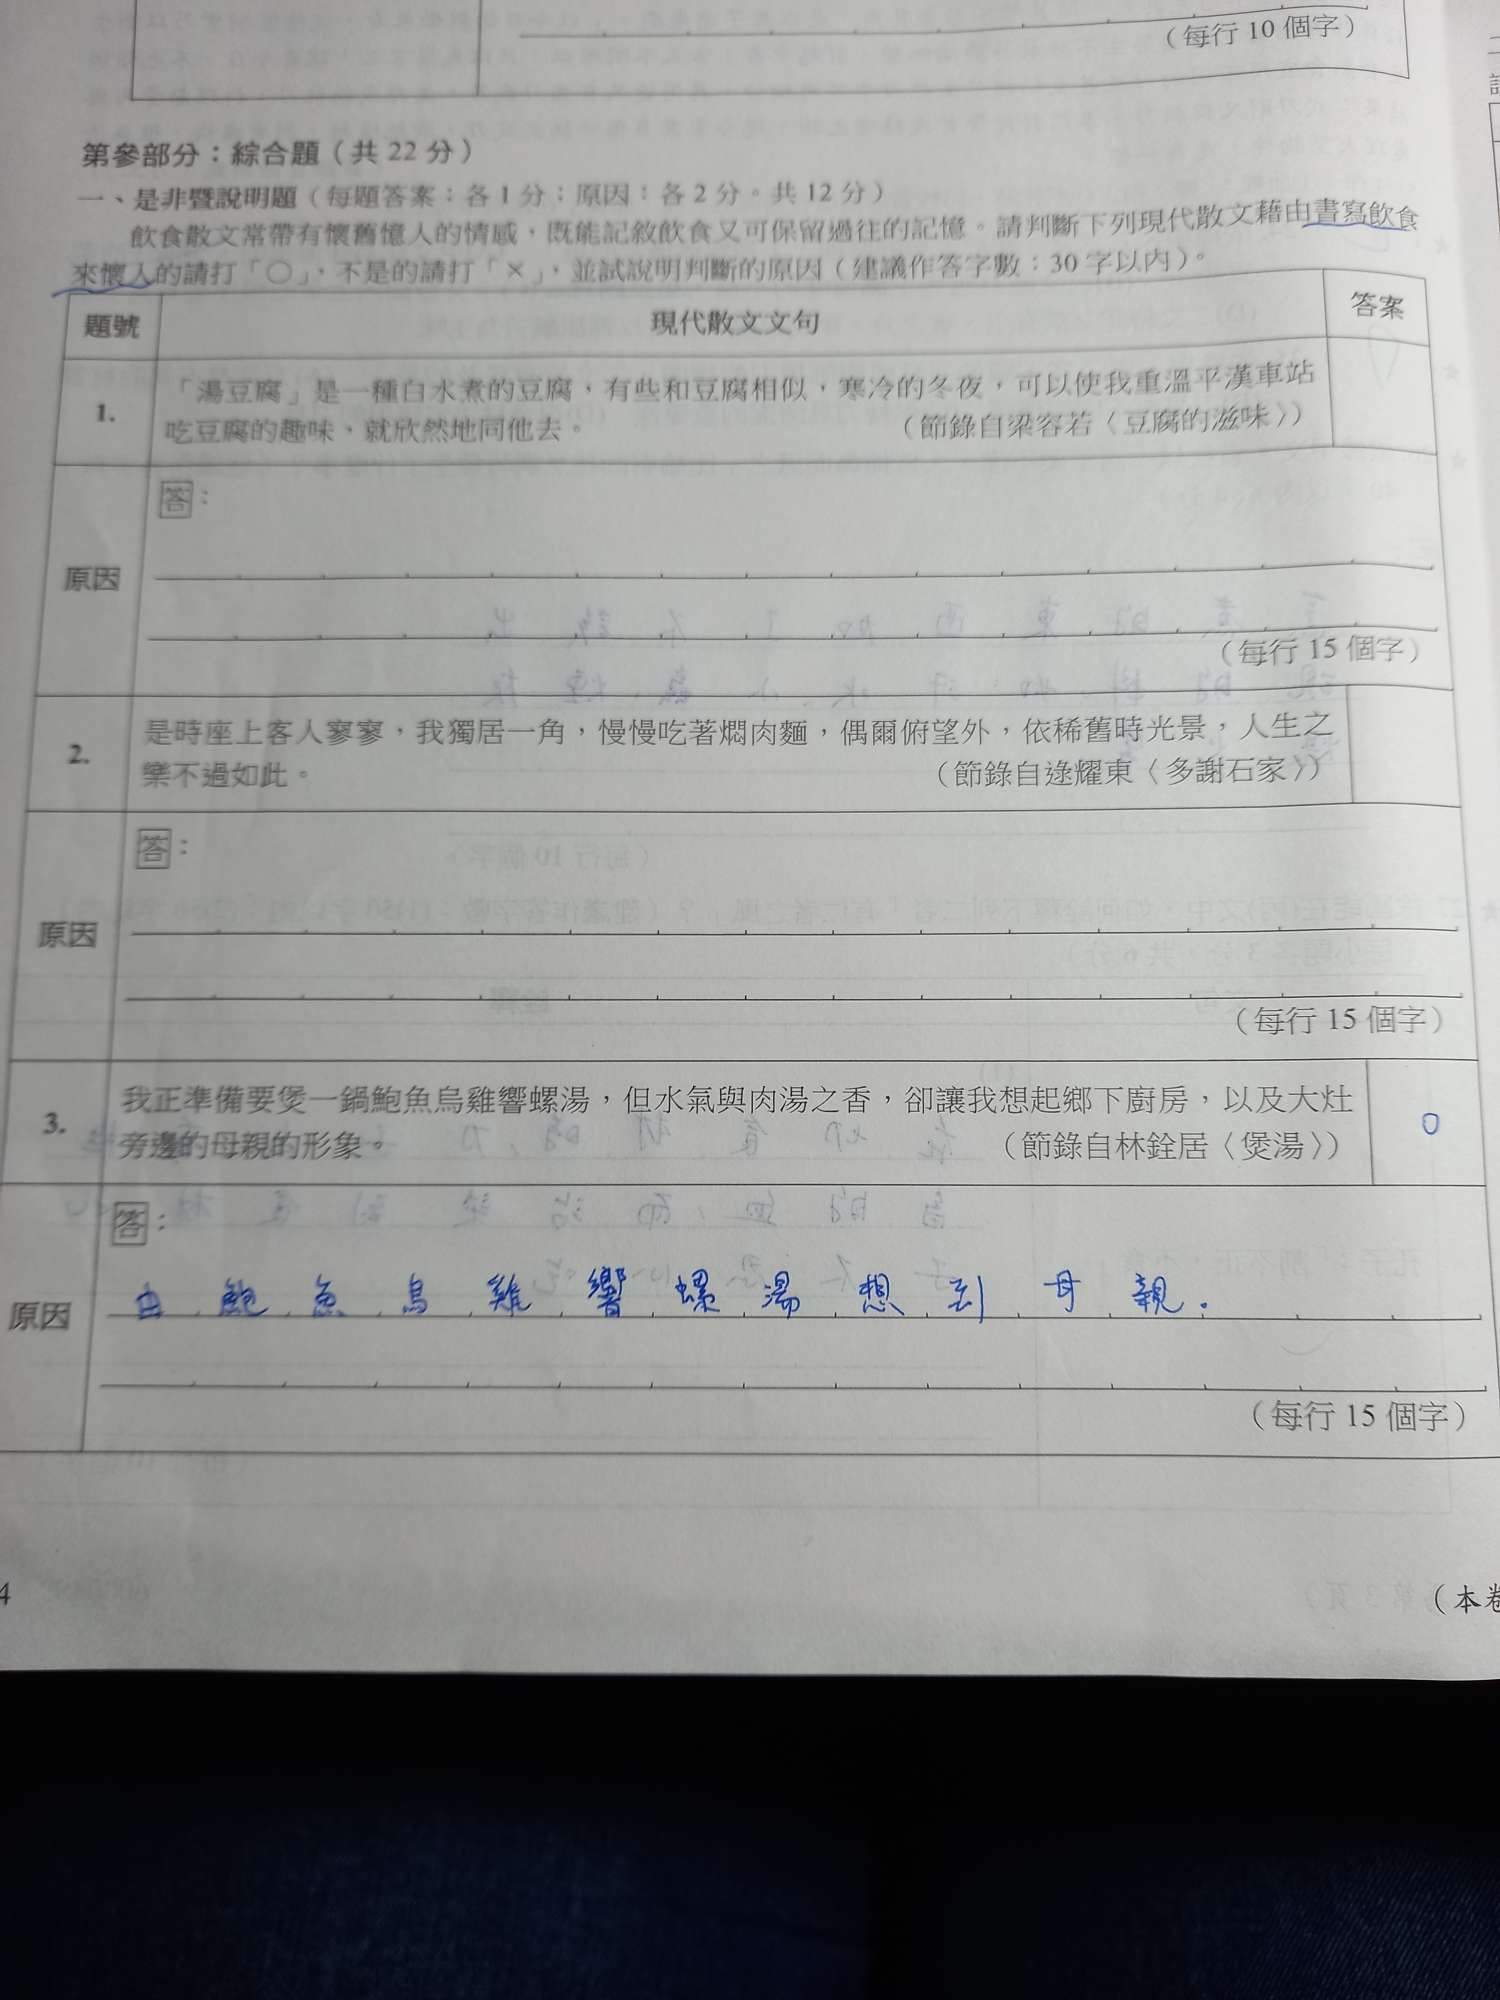 (每行 10 個字)
第參部分：綜合題（共 22 分）
一、是非暨說明題（每題答案：各 1 分；原因：各 2 分。共 12 分）
飲食散文常帶有懷舊憶人的情感，既能記敘飲食又可保留過往的記憶。請判斷下列現代散文藉由書寫飲食
來懷人的請打「○」，不是的請打「×」，並試說明判斷的原因（建議作答字數：30 字以內）。
題號 現代散文文句 答案
1. 「湯豆腐」是一種白水煮的豆腐，有些和豆腐相似，寒冷的冬夜，可以使我重溫平漢車站
吃豆腐的趣味、就欣然地同他去。（節錄自梁容若〈豆腐的滋味〉）
原因 答：
（每行 15 個字）
2. 是時座上客人寥寥，我獨居一角，慢慢吃著燜肉麵，偶爾俯望外，依稀舊時光景，人生之
樂不過如此。（節錄自逯耀東〈多謝石家〉）
原因 答：
（每行 15 個字）
3. 我正準備要煲一鍋鮑魚烏雞響螺湯，但水氣與肉湯之香，卻讓我想起鄉下廚房，以及大灶
旁邊的母親的形象。（節錄自林銓居〈煲湯〉） O
答：
原因 由鮑魚烏雞響螺湯想到母親。
（每行 15 個字）
4
（本卷